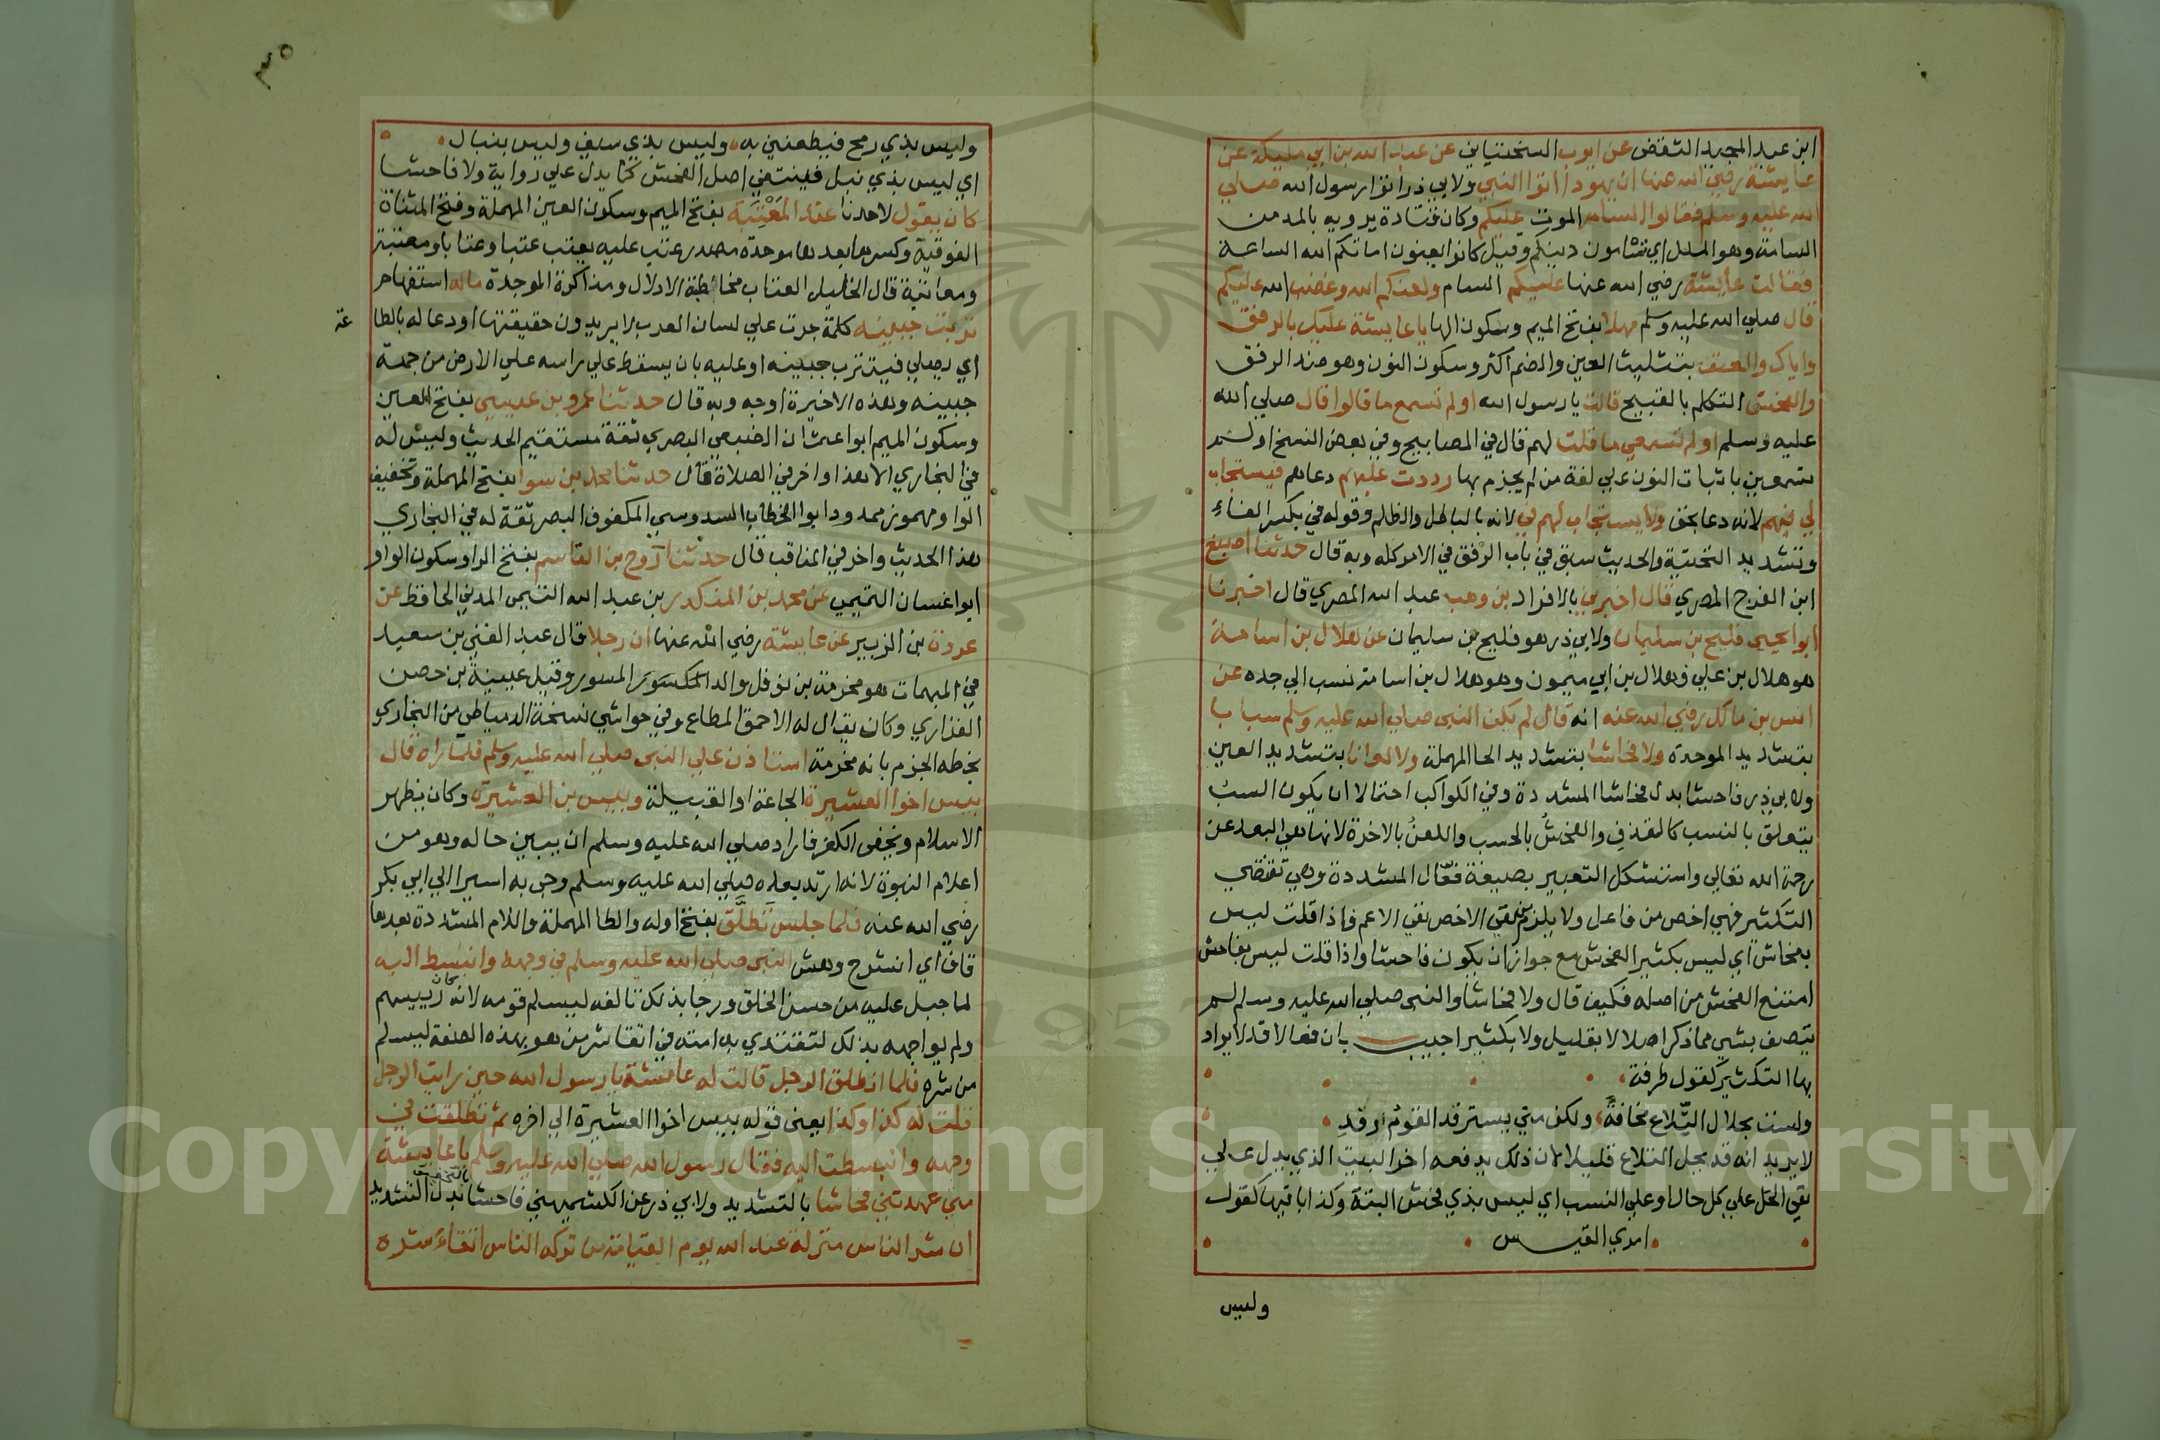 ابن عبد المجيد الثقفي عن ايوب السختياني عن عبد الله بن ابي مليكة عن
عايشة رضي الله عنها ان يهود اتوا النبي ولابي ذر اتوا رسول الله صلى
الله عليه وسلم فقالوا السام الموت عليكم وكان قتادة يرويه بالمد من
السامة وهو الملل اي تسامون دينكم وقيل كانوا يعنون اماتكم الله الساعة
فقالت عايشة رضي الله عنها عليكم السام ولعنكم الله وغضب الله عليكم
قال صلي الله عليه وسلم مهلا بفتح الميم وسكون الها يا عايشة عليك بالرفق
واياك والعنف بتثليث العين والضم اكثر وسكون النون وهو ضد الرفق
والفحش التكلم بالقبيح قالت يا رسول الله اولم تسمع ما قالوا قال صلي الله
عليه وسلم اولم تسمعي ما قلت لهم قال في المصابيح وفي بعض النسخ اولم
تسمعين باثبات النون علي لغة من لم يجزم بها رددت عليهم دعاهم فيستجاب
لي فيهم لانه دعا بحق ولا يستجاب لهم في لانه بالباطل والظلم وقوله في بكسر الفاء
وتشديد التحتية والحديث سبق في باب الرفق في الامر كله وبه قال حدثنا اصبغ
ابن الفرج المصري قال اخبرني بالافراد بن وهب عبد الله المصري قال اخبرنا
ابو يحيي فليح بن سليمان ولابي ذر هو فليح بن سليمان عن هلال بن اسامة
هو هلال بن علي وهلال بن ابي ميمون وهو هلال بن اسامة نسب الي جده عن
انس بن مالك رضي الله عنه انه قال لم يكن النبي صلي الله عليه وسلم سبابا
بتشديد الموحدة ولا فحاشا بتشديد الحا المهملة ولا لعانا بتشديد العين
ولابي ذر فاحشا بدل فحاشا المشددة وفي الكواكب احتمالا ان يكون السب
يتعلق بالنسب كالقذف والفحش بالحسب واللعن بالاخرة لانها هي البعد عن
رحمة الله تعالي واستشكل التعبير بصيغة فعّال المشددة وهي تقتضي
التكثير فهي اخص من فاعل ولا يلزم من نفي الاخص نفي الاعم فاذا قلت ليس
بفحاش اي ليس بكثير الفحش مع جواز ان يكون فاحشا واذا قلت ليس بفاحش
امتنع الفحش من اصله فكيف قال ولا فحاشا والنبي صلي الله عليه وسلم لم
يتصف بشي مما ذكر اصلا لا بقليل ولا بكثير اجيب بان فعالا قد لا يراد
بها التكثير كقول طرفة
ولست بحلال التلاع مخافة ولكن متي يسترفد القوم ارفد
لا يريد انه قد يحل التلاع قليلا لان ذلك يدفعه اخر البيت الذي يدل علي
نفي الحل علي كل حال او علي النسب اي ليس بذي فحش البتة وكذا باقيها كقول
امري القيس
وليس
٣٥
وليس بذي رمح فيطعنني به وليس بذي سيف وليس بنبال
اي ليس بذي نبل فينتفي اصل الفحش كما يدل علي رواية ولا فاحشا
كان يقول لاحدنا عند المَعْتِبَة بفتح الميم وسكون العين المهملة وفتح المثناة
الفوقية وكسرها بعدها موحدة مصدر عتب عليه يعتب عتبا وعتابا ومعتبة
ومعاتبة قال الخليل العتاب مخاطبة الادلال ومذاكرة الموجدة ماله استفهام
تربت جبينه كلمة جرت علي لسان العرب لا يريدون حقيقتها او دعا له بالطا
عة
اي يصلي فيتترب جبينه او عليه بان يسقط علي راسه علي الارض من جهة
جبينه وهذه الاخيرة اوجه وبه قال حدثنا عمرو بن عيسي بفتح العين
وسكون الميم ابو عثمان الضبعي البصري ثقة مستقيم الحديث وليس له
في البخاري الا هذا واخر في الصلاة قال حدثنا محمد بن سوا بفتح المهملة وتخفيف
الواو مهموز ممدود ابو الخطاب السدوسي المكفوف البصر ثقة له في البخاري
هذا الحديث واخر في المناقب قال حدثنا روح بن القاسم بفتح الرا وسكون الواو
ابو غسان التميمي عن محمد بن المنكدر بن عبد الله التيمي المدني الحافظ عن
عروة بن الزبير عن عايشة رضي الله عنها ان رجلا قال عبد الغني بن سعيد
في المبهمات هو مخرمة بن نوفل والد المسور وقيل عيينة بن حصن
الفزاري وكان يقال له الاحمق المطاع وفي حواشي نسخة الدمياطي من البخاري
بخطه الجزم بانه مخرمة استاذن علي النبي صلي الله عليه وسلم فلما راه قال
بيس اخوا العشيرة الجاعة او القبيلة وبيس بن العشيرة وكان يظهر
الاسلام ويخفي الكفر فاراد صلي الله عليه وسلم ان يبين حاله وهو من
اعلام النبوة لانه ارتد بعده صلي الله عليه وسلم وجي به اسيرا الي ابي بكر
رضي الله عنه فلما جلس تَطَلَّق بفتح اوله والطا المهملة واللام المشددة بعدها
قاف اي انشرح وهش النبي صلي الله عليه وسلم في وجهه وانبسط اليه
لما جبل عليه من حسن الخلق ورجا بذلك تالفه ليسلم قومه لانه كان رييسهم
ولم يواجهه بذلك لتقتدي به امته في اتقا شر من هو بهذه الصفة ليسلم
من شره فلما انطلق الرجل قالت له عايشة يا رسول الله حين رايت الرجل
قلت له كذا وكذا يعني قوله بيس اخوا العشيرة الي اخره ثم تطلقت في
وجهه وانبسطت اليه فقال رسول الله صلي الله عليه وسلم يا عايشة
متي عهدتني فحاشا بالتشديد ولابي ذر عن الكشميهني فاحشا بالتخفيف بدل التشديد
ان شر الناس منزلة عند الله يوم القيامة من تركه الناس اتقاء شره
Copyright © King Saud University
1957